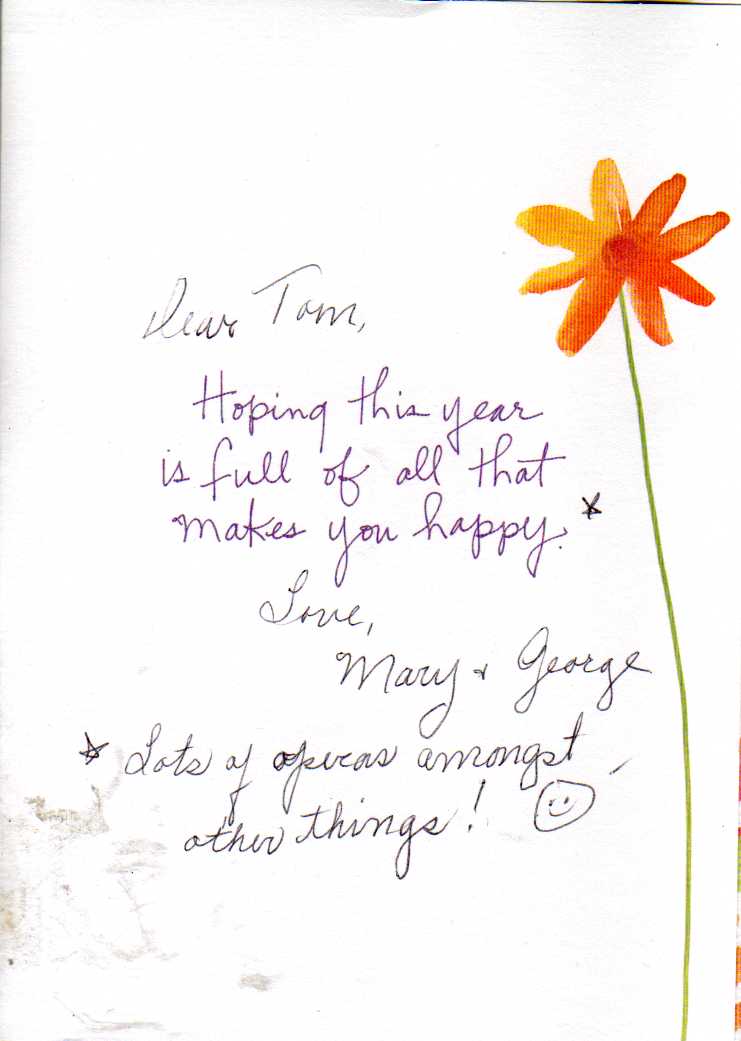 Dear Tom,
Hoping this year
is full of all that
makes you happy.*
Love,
Mary + George
* Lots of operas amongst
other things! ☺